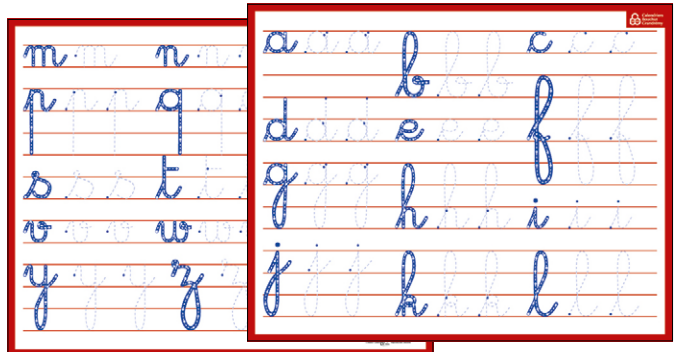 m m n n
p p p q q
s s s t t
v v v w w
y y y z z
a a a b b b c c c
d d d e e e f f f
g g g h h h i i i
j j j k k k l l l